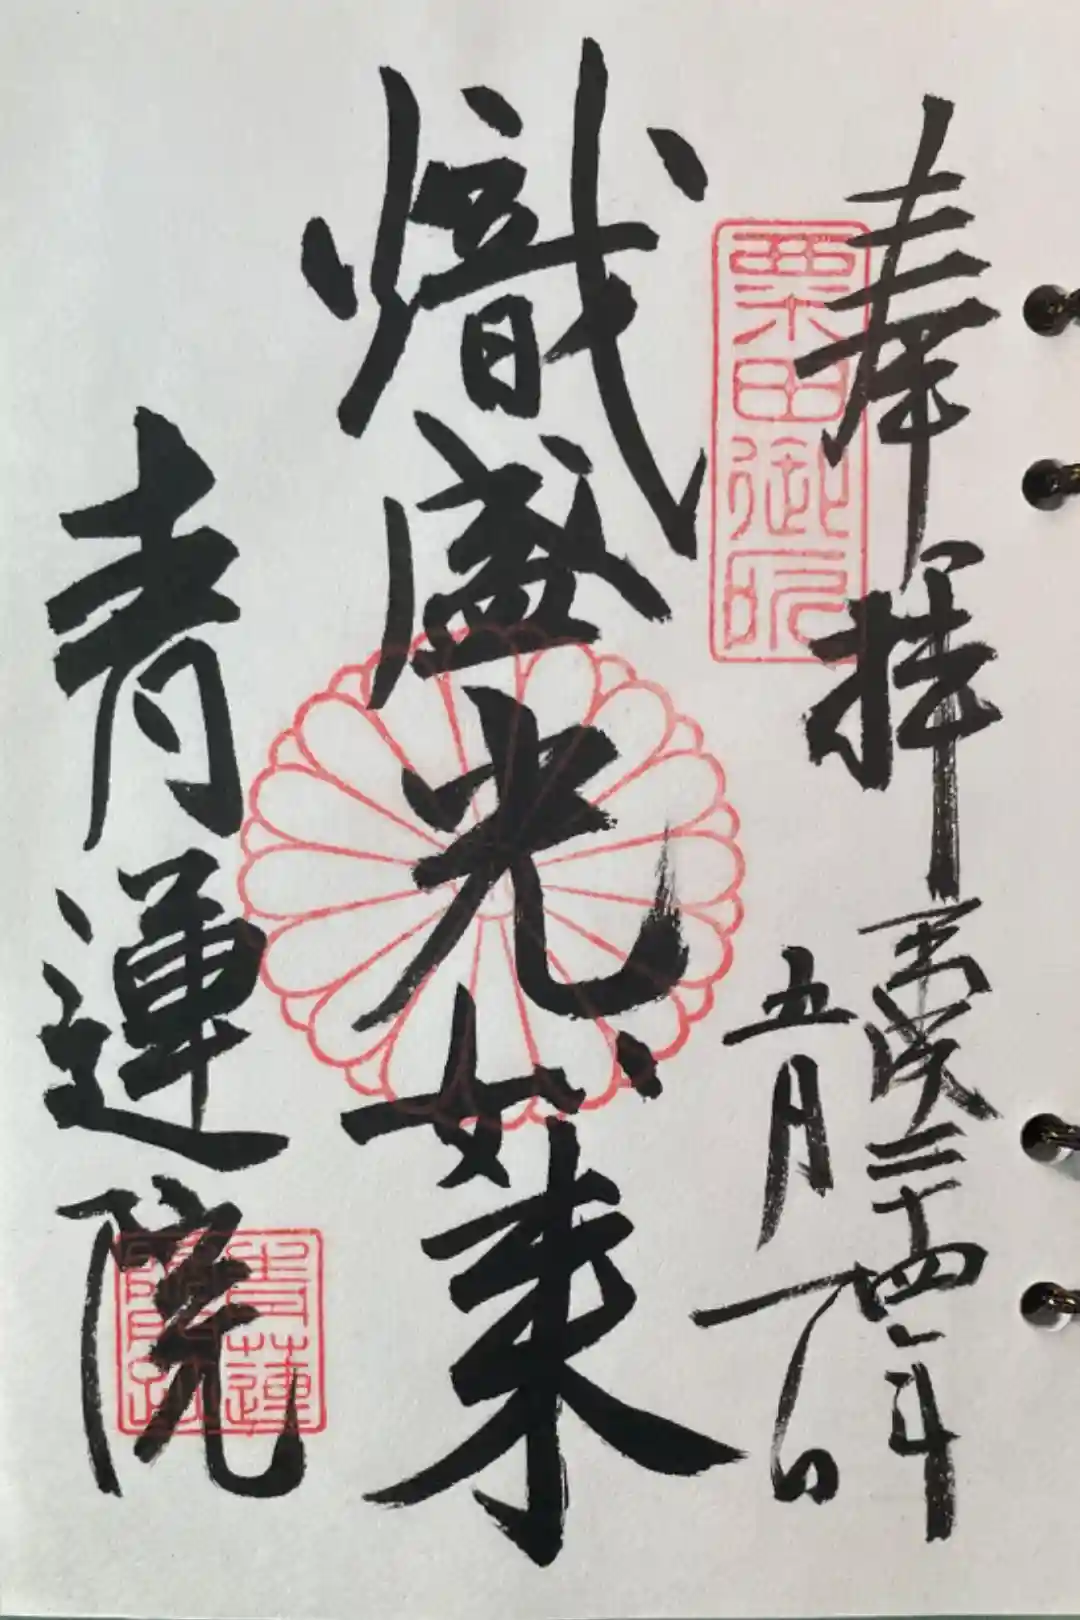 奉拝 西暦二十四年
五月一日
粟田御所
熾盛光如来
青蓮院